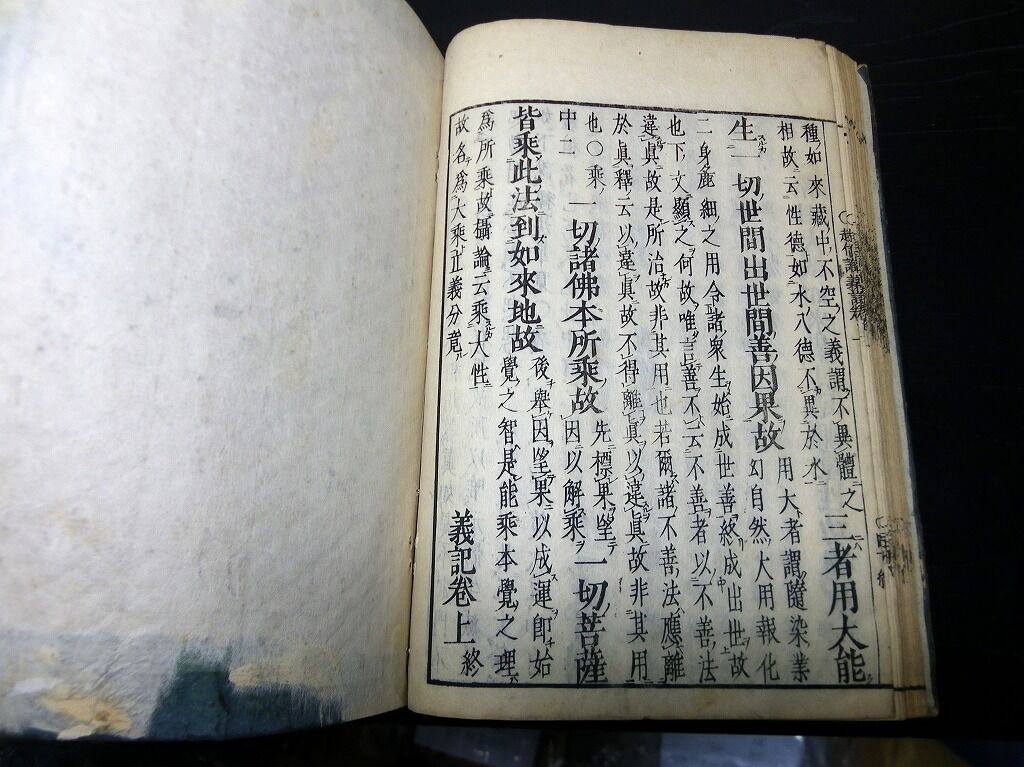 種如來藏中不空之義謂不異體之
相故云性德如水八德不異於水
三者用大能
生一切世間出世間善因果故
用大者謂隨染業
幻自然大用報化
二身麁細之用令諸衆生始成世善終成出世故
也下文顯之何故唯言善不云不善者以不善法
違眞故是所治故非其用也若爾諸不善法應離
於眞釋云以違眞故不得離眞以違眞故非其用
也○乘
中二
一切諸佛本所乘故
先標果望
因以解乘
一切菩薩
皆乘此法到如來地故
後舉因望果以成運即始
覺之智是能乘本覺之理
爲所乘故攝論云乘大性
故名爲大乘立義分竟
義記卷上終